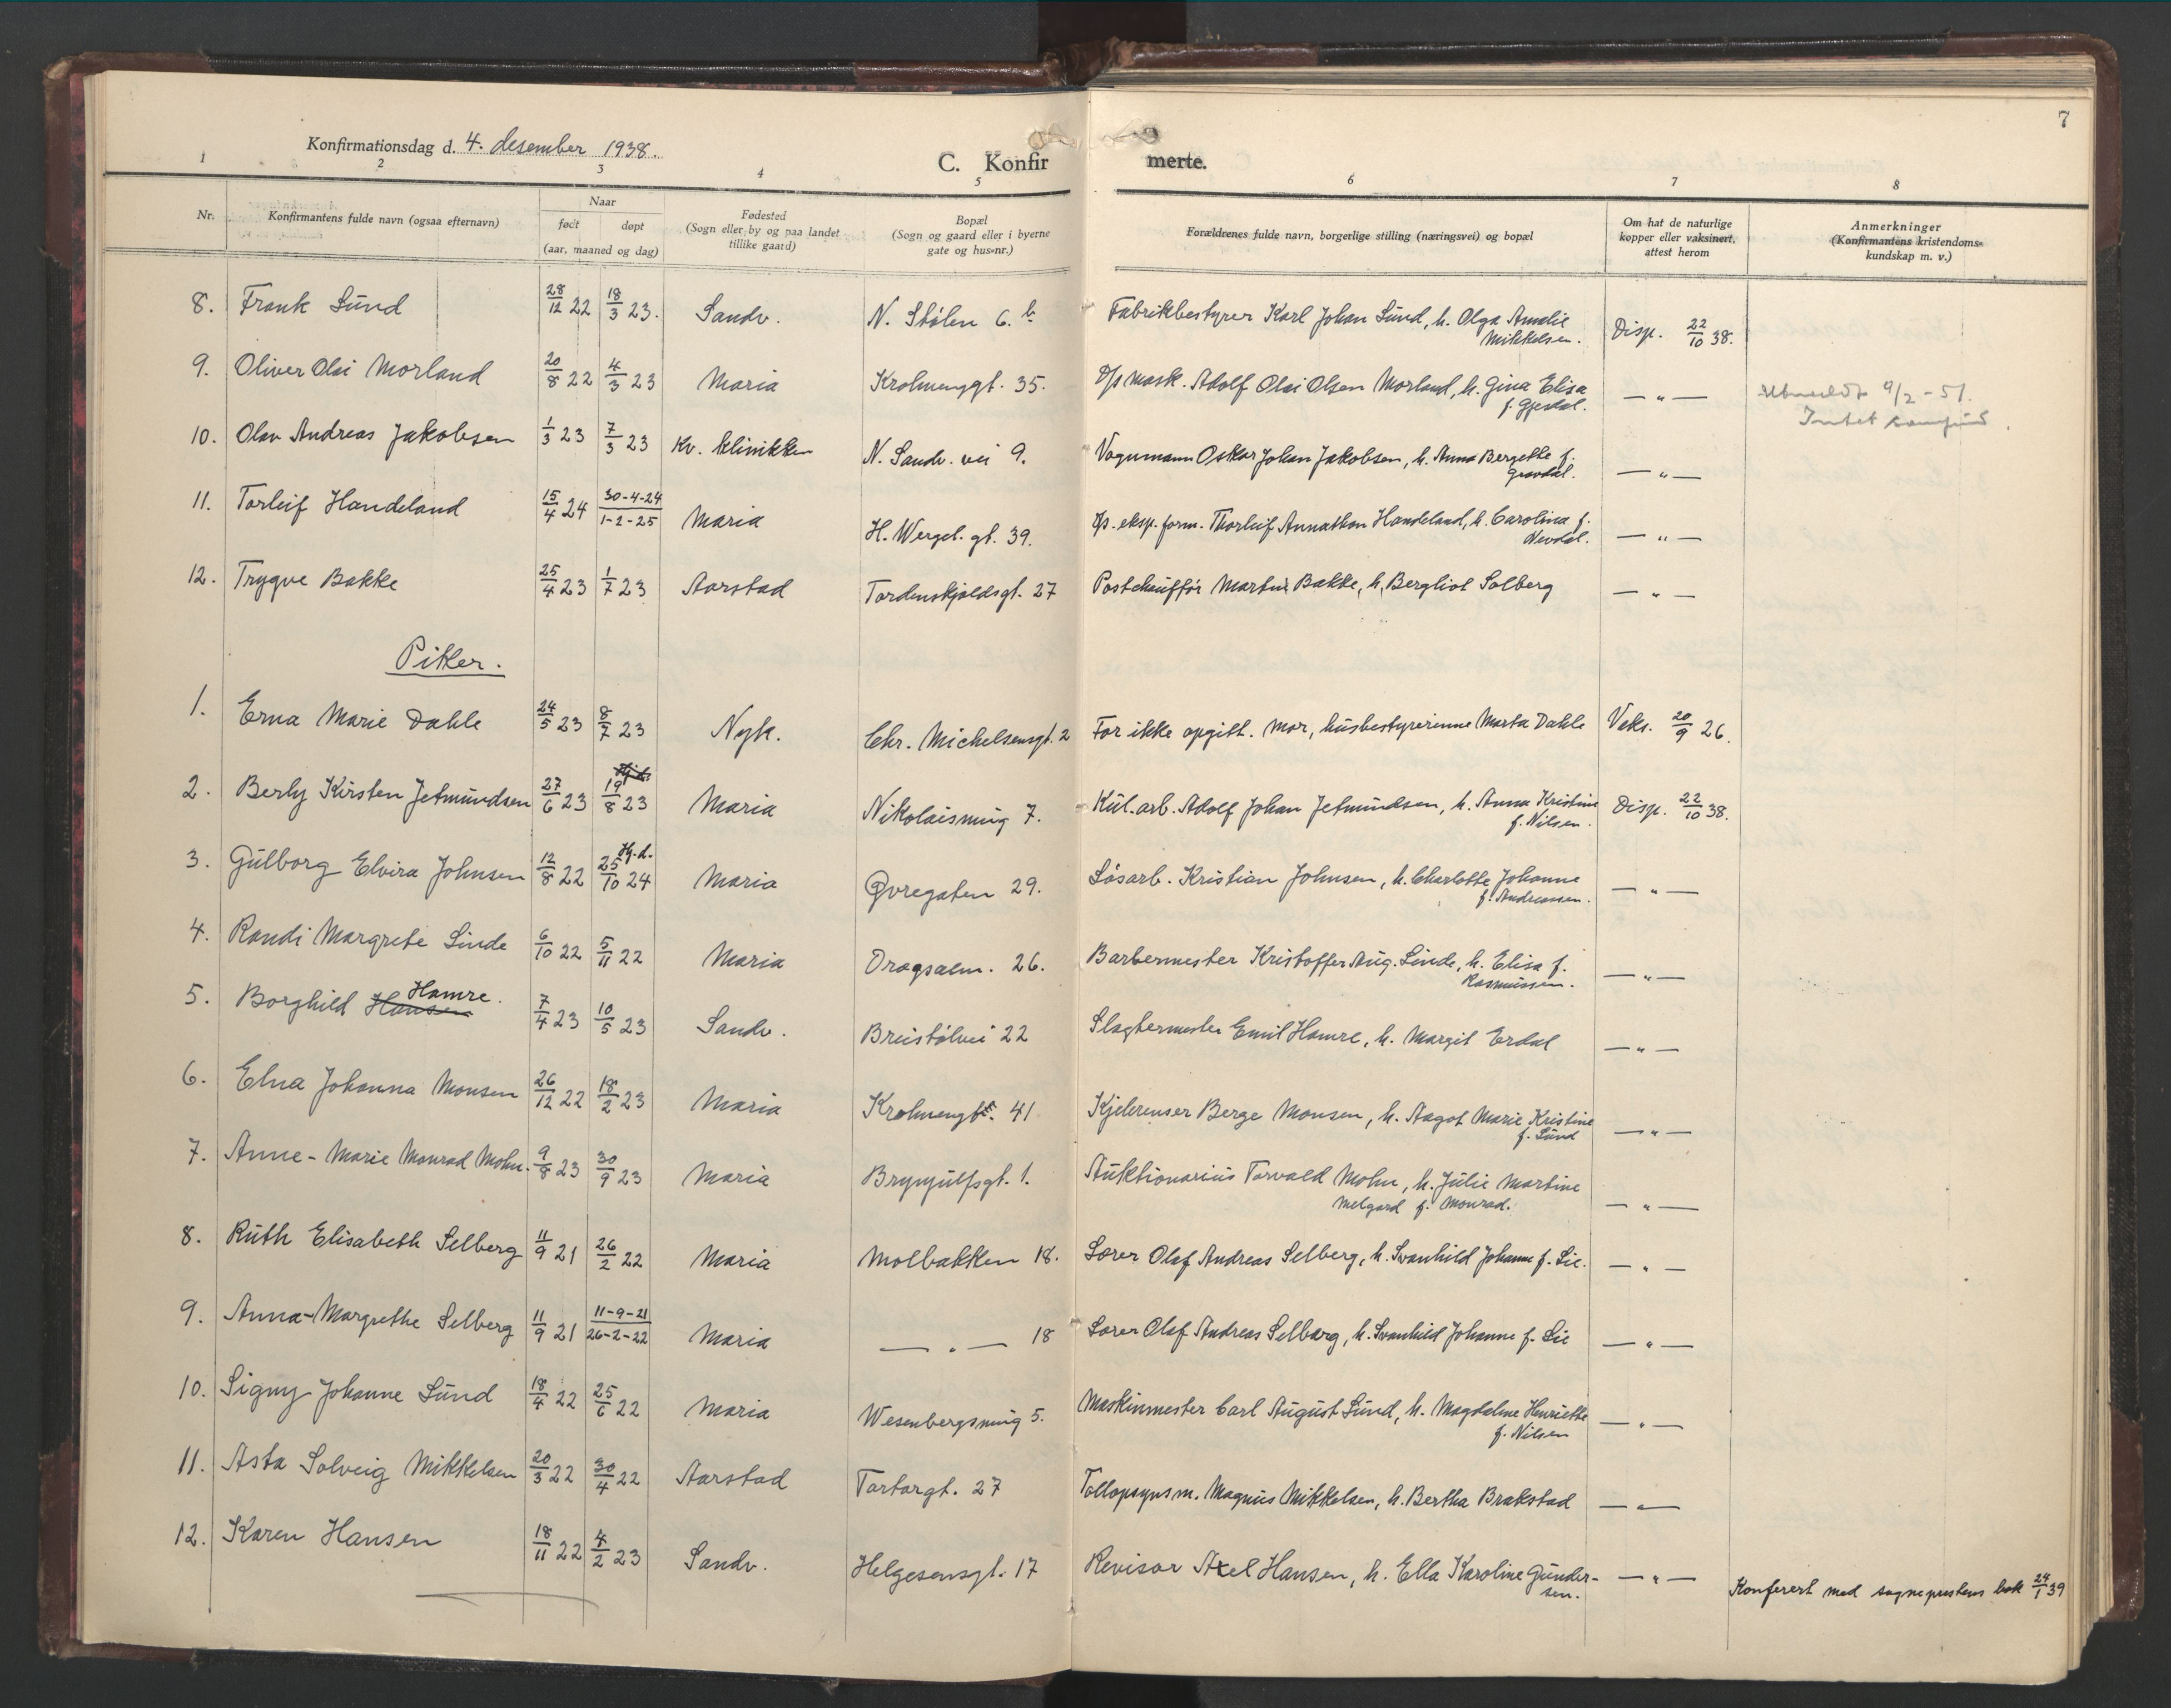 7
Konfirmationsdag d. 4. desember 1938.
C. Konfirmerte.
1 2 3 4 5 6 7 8
Nr. Konfirmantens fulde navn (ogsaa efternavn) Naar født døpt (aar, maaned og dag) Fødested (Sogn eller by og paa landet tillike gaard) Bopæl (Sogn og gaard eller i byerne gate og hus-nr.) Forældrenes fulde navn, borgerlige stilling (næringsvei) og bopæl Om hat de naturlige kopper eller vaksinert, attest herom Anmerkninger (Konfirmantens kristendomskundskap m. v.)
8. Frank Lund 28/12 22 18/3 23. Sandv. N. Stølen 6.b Fabrikbestyrer Karl Johan Lund, h. Olga Amalie Mikkelsen. Disp. 22/10 38.
9. Oliver Olai Morland 20/8 22 4/3 23 Maria Krohnenggt. 35. D/s mask. Adolf Olai Olsen Morland, h. Gina Elisa f. Gjesdal. — " — Utmeldt 9/2 - 51. Intet samfund.
10. Olav Andreas Jakobsen 1/3 23 7/3 23 Kv. klinikken N. Sandv. vei 9. Vognmann Oskar Johan Jakobsen, h. Anna Bergette f. Gravdal. — " —
11. Torleif Handeland 15/4 24 30-4-24 1-2-25 Maria H. Wergel. gt. 39. D/s. eksp. form. Thorleif Annathon Handeland, h. Carolina f. Nevdal. — " —
12. Trygve Bakke 25/4 23 1/7 23 Aarstad Tordenskjoldsgt. 27 Postchauffør Martin Bakke, h. Bergliot Solberg — " —
Piker.
1. Erna Marie Dahle 24/5 23 8/7 23 Nyk. Chr. Michelsensgt. 2 Far ikke opgitt. Mor, husbestyrerinne Marta Dahle Vaks. 20/9 26.
2. Berly Kirsten Jetmundsen 27/6 23 19/8 23 Maria Nikolaismug 7. Kul.arb. Adolf Johan Jetmundsen, h. Anna Kristine f. Nilsen. Disp. 22/10 38.
3. Gulborg Elvira Johnsen 12/8 22 Hj.d. 25/10 24 Maria Øvregaten 29. Løsarb. Kristian Johnsen, h. Charlotte Johanne f. Andreassen. — " —
4. Randi Margrete Linde 6/10 22 5/11 22 Maria Dragsalm. 26. Barbermester Kristoffer Aug. Linde, h. Elisa f. Rasmussen. — " —
5. Borghild Hansen Hamre. 7/4 23 10/5 23 Sandv. Breistølvei 22 Slagtermester Emil Hamre, h. Margit Erdal — " —
6. Elna Johanna Monsen 26/12 22 18/2 23 Maria Krohnengt. 41 Kjelrenser Berge Monsen, h. Aagot Marie Kristine f. Lund — " —
7. Anne-Marie Monrad Mohn. 9/8 23 30/9 23 Maria Brynjulfsgt. 1. Auktionarius Torvald Mohn, h. Julie Martine Melgard f. Monrad. — " —
8. Ruth Elisabeth Selberg 11/9 21 26/2 22 Maria Molbakken 18. Lærer Olaf Andreas Selberg, h. Svanhild Johanne f. Lie. — " —
9. Anna-Margrethe Selberg 11/9 21 11-9-21 26-2-22 Maria — " — 18 Lærer Olaf Andreas Selberg, h. Svanhild Johanne f. Lie — " —
10. Signy Johanne Lund 18/4 22 25/6 22 Maria Wesenbergsmug 5. Maskinmester Carl August Lund, h. Magdalene Henriette f. Nilsen — " —
11. Asta Solveig Mikkelsen 20/3 22 30/4 22 Aarstad Tartargt. 27 Tollopsynsm. Magnus Mikkelsen, h. Bertha Brakstad — " —
12. Karen Hansen 18/11 22 4/2 23 Sandv. Helgesensgt. 17 Revisor Axel Hansen, h. Ella Karoline Gundersen. — " —
Konferert med sogneprestens bok 24/1 39